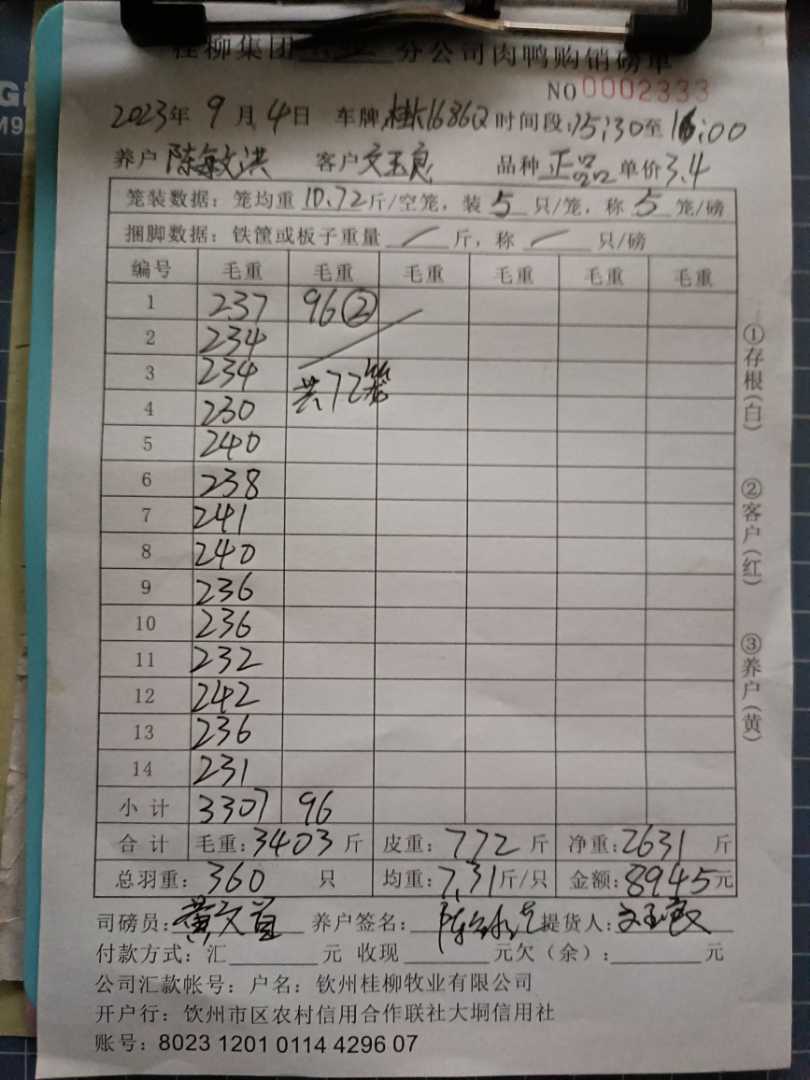 桂柳集团 分公司肉鸭购销磅单
NO 0002333
2023年 9 月 4日 车牌 桂K1686Q 时间段:15:30至 16:00
养户 陈敏洪 客户 文玉良 品种 正品 单价 3.4
笼装数据: 笼均重 10.72斤/空笼, 装 5 只/笼, 称 5 笼/磅
捆脚数据: 铁筐或板子重量 / 斤, 称 / 只/磅
编号 毛重 毛重 毛重 毛重 毛重 毛重
1 237 96②
2 234
3 234 共72笼
4 230
5 240
6 238
7 241
8 240
9 236
10 236
11 232
12 242
13 236
14 231
小计 3307 96
合计 毛重:3403斤 皮重:772斤 净重:2631斤
总羽重: 360 只 均重:7.31斤/只 金额:8945元
司磅员: 养户签名: 提货人:文玉良
付款方式:汇 元 收现 元欠(余): 元
公司汇款帐号: 户名: 钦州桂柳牧业有限公司
开户行: 钦州市区农村信用合作联社大垌信用社
账号: 8023 1201 0114 4296 07
①存根(白)
②客户(红)
③养户(黄)